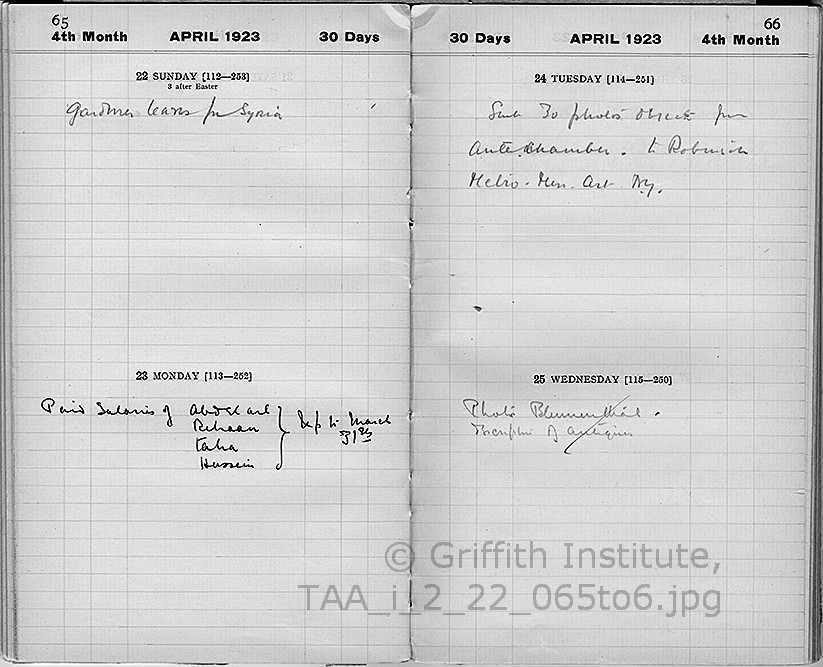 65
4th Month APRIL 1923 30 Days
22 SUNDAY [112—253]
3 after Easter
Gardiner leaves for Syria
23 MONDAY [113—252]
Paid Salaries of Abdel aal
Rehaan
Taha
Hussein
up to March
31st
66
30 Days APRIL 1923 4th Month
24 TUESDAY [114—251]
Sent 30 photos objects from
Antechamber. to Robinson
Metro. Mus. Art. N.y.
25 WEDNESDAY [115—250]
Photo Blumenthal.
of antiques
© Griffith Institute,
TAA_i_2_22_065to6.jpg